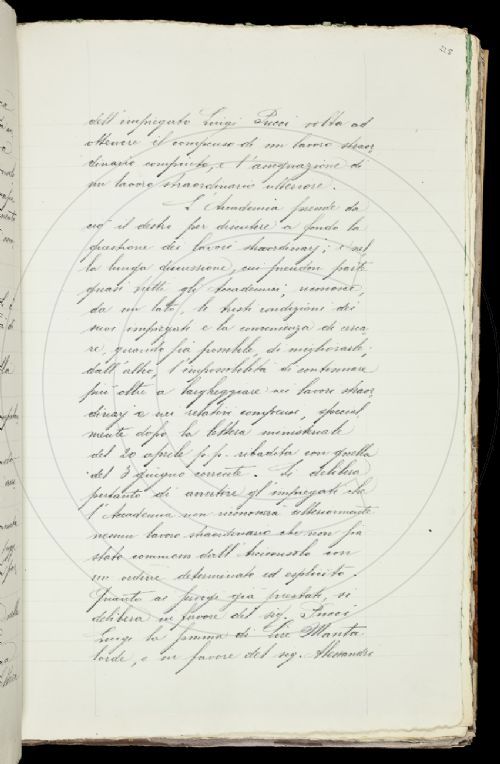 228
dell'impiegato Luigi Pucci volta ad
ottenere il compenso di un lavoro straor
dinario compiuto, e l'assegnazione di
un lavoro straordinario ulteriore.
L'Accademia prende da
ciò il destro per discutere a fondo la
questione dei lavori straordinarj; e nel
la lunga discussione, cui prendon parte
quasi tutti gli Accademici, riconosce,
da un lato, le tristi condizioni dei
suoi impiegati e la convenienza di cerca
re, quando sia possibile, di migliorarle;
dall'altro, l'impossibilità di continuare
più oltre a largheggiare nei lavori straor
dinarj e nei relativi compensi, special
mente dopo la lettera ministeriale
del 20 aprile p.p. ribadita con quella
del 3 giugno corrente. Si delibera
pertanto di avvertire gl'impiegati che
l'Accademia non riconoscerà ulteriormente
nessun lavoro straordinario che non sia
stato commesso dall'Arciconsolo con
un ordine determinato ed esplicito.
Quanto ai servigi già prestati, si
delibera in favore del sig. Pucci
Luigi la somma di Lire Ottanta
lorde, e in favore del sig. Alessandro